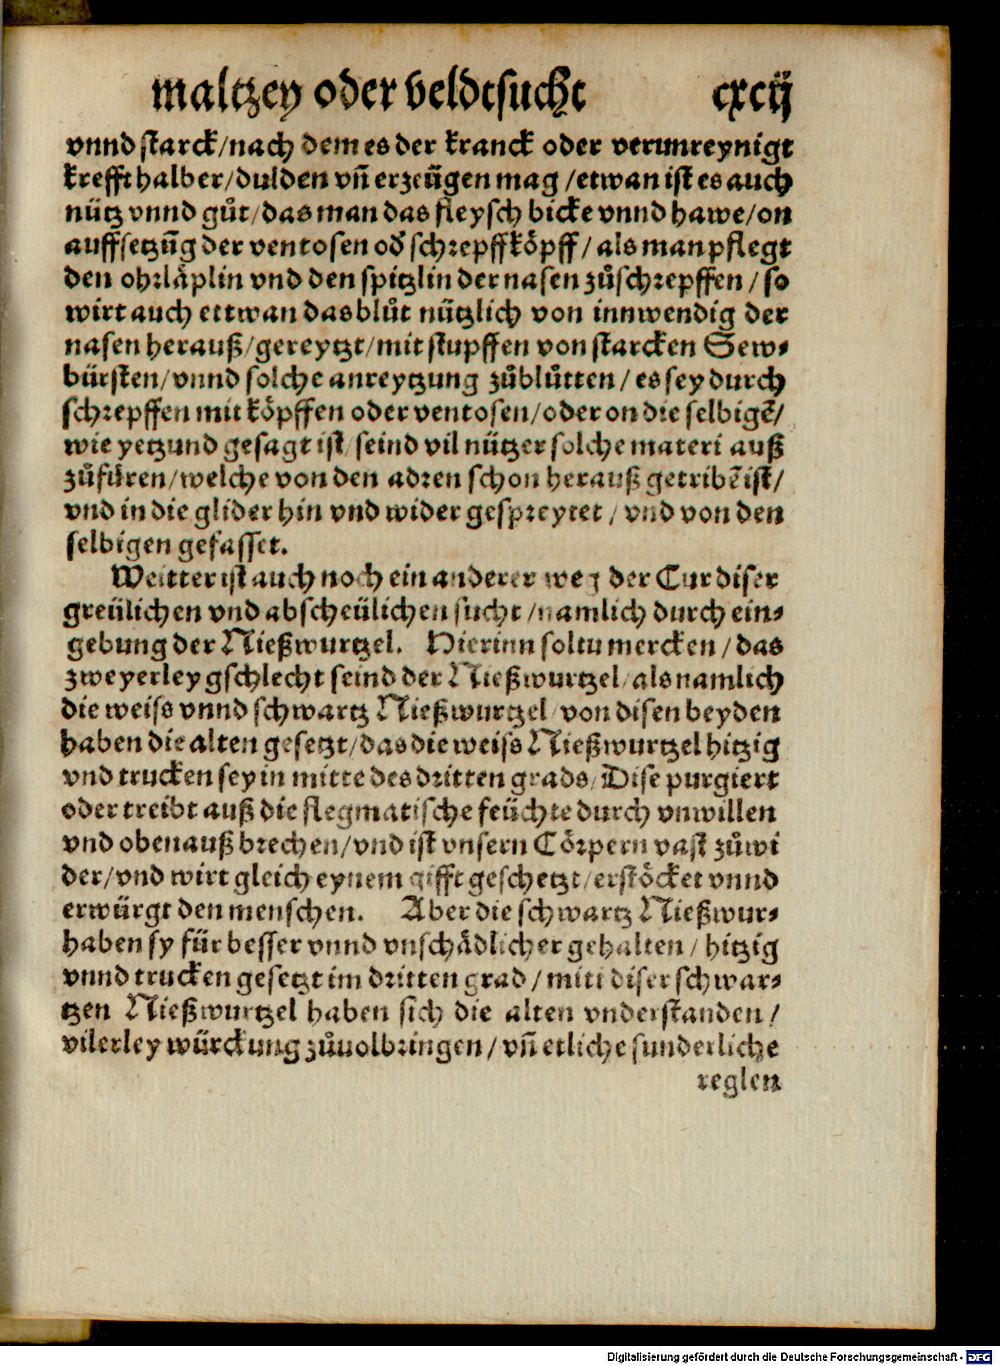 maltzey oder veldtsucht cxcij
vnnd starck/nach dem es der kranck oder verunreynigt
krefft halber/dulden vñ erzeügen mag/etwan ist es auch
nütz vnnd gůt/das man das fleysch bicke vnnd hawe/on
auffsetzũg der ventosen oď schrepffköpff/als man pflegt
den ohrläplin vnd den spitzlin der nasen zůschrepffen/so
wirt auch ettwan das blůt nützlich von innwendig der
nasen herauß/gereytzt/mit stupffen von starcken Sew⸗
bürsten/vnnd solche anreytzung zůblůtten/es sey durch
schrepffen mit köpffen oder ventosen/oder on die selbigē/
wie yetzund gesagt ist/seind vil nützer solche materi auß
zůfüren/welche von den adren schon herauß getribē ist/
vnd in die glider hin vnd wider gespreytet/vnd von den
selbigen gefasset.
Weitter ist auch noch ein anderer weg der Cur diser
greülichen vnd abscheülichen sucht/namlich durch ein⸗
gebung der Nießwurtzel. Hierinn soltu mercken/das
zweyerley gschlecht seind der Nießwurtzel/als namlich
die weiss vnnd schwartz Nießwurtzel/von disen beyden
haben die alten gesetzt/das die weiss Nießwurtzel hitzig
vnd trucken sey in mitte des dritten grads/Dise purgiert
oder treibt auß die flegmatische feüchte durch vnwillen
vnd obenauß brechen/vnd ist vnsern Cörpern vast zůwi
der/vnd wirt gleich eynem gifft geschetzt/erstöcket vnnd
erwürgt den menschen. Aber die schwartz Nießwur⸗
haben sy für besser vnnd vnschädlicher gehalten/hitzig
vnnd trucken gesetzt im dritten grad/mitt diser schwar⸗
tzen Nießwurtzel haben sich die alten vnderstanden/
vilerley würckung zůuolbringen/vñ etliche sunderliche
reglen
Digitalisierung gefördert durch die Deutsche Forschungsgemeinschaft - DFG